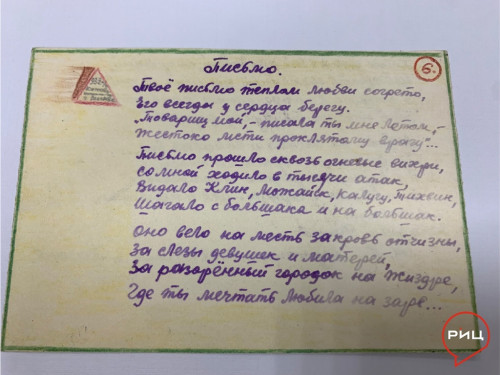 Письмо.
6.
Твоё письмо теплом любви согрето,
Его всегда у сердца берегу.
"Товарищ мой,- писала ты мне летом,-
Жестоко мсти проклятому врагу"...
Письмо прошло сквозь огневые вихри,
Со мной ходило в тысячи атак,
Видало Клин, Можайск, Калугу, Тихвин,
Шагало с большака и на большак.
Оно вело на месть за кровь отчизны,
За слезы девушек и матерей,
За разорённый городок на Жиздре,
Где ты мечтать любила на заре...
РИЦ